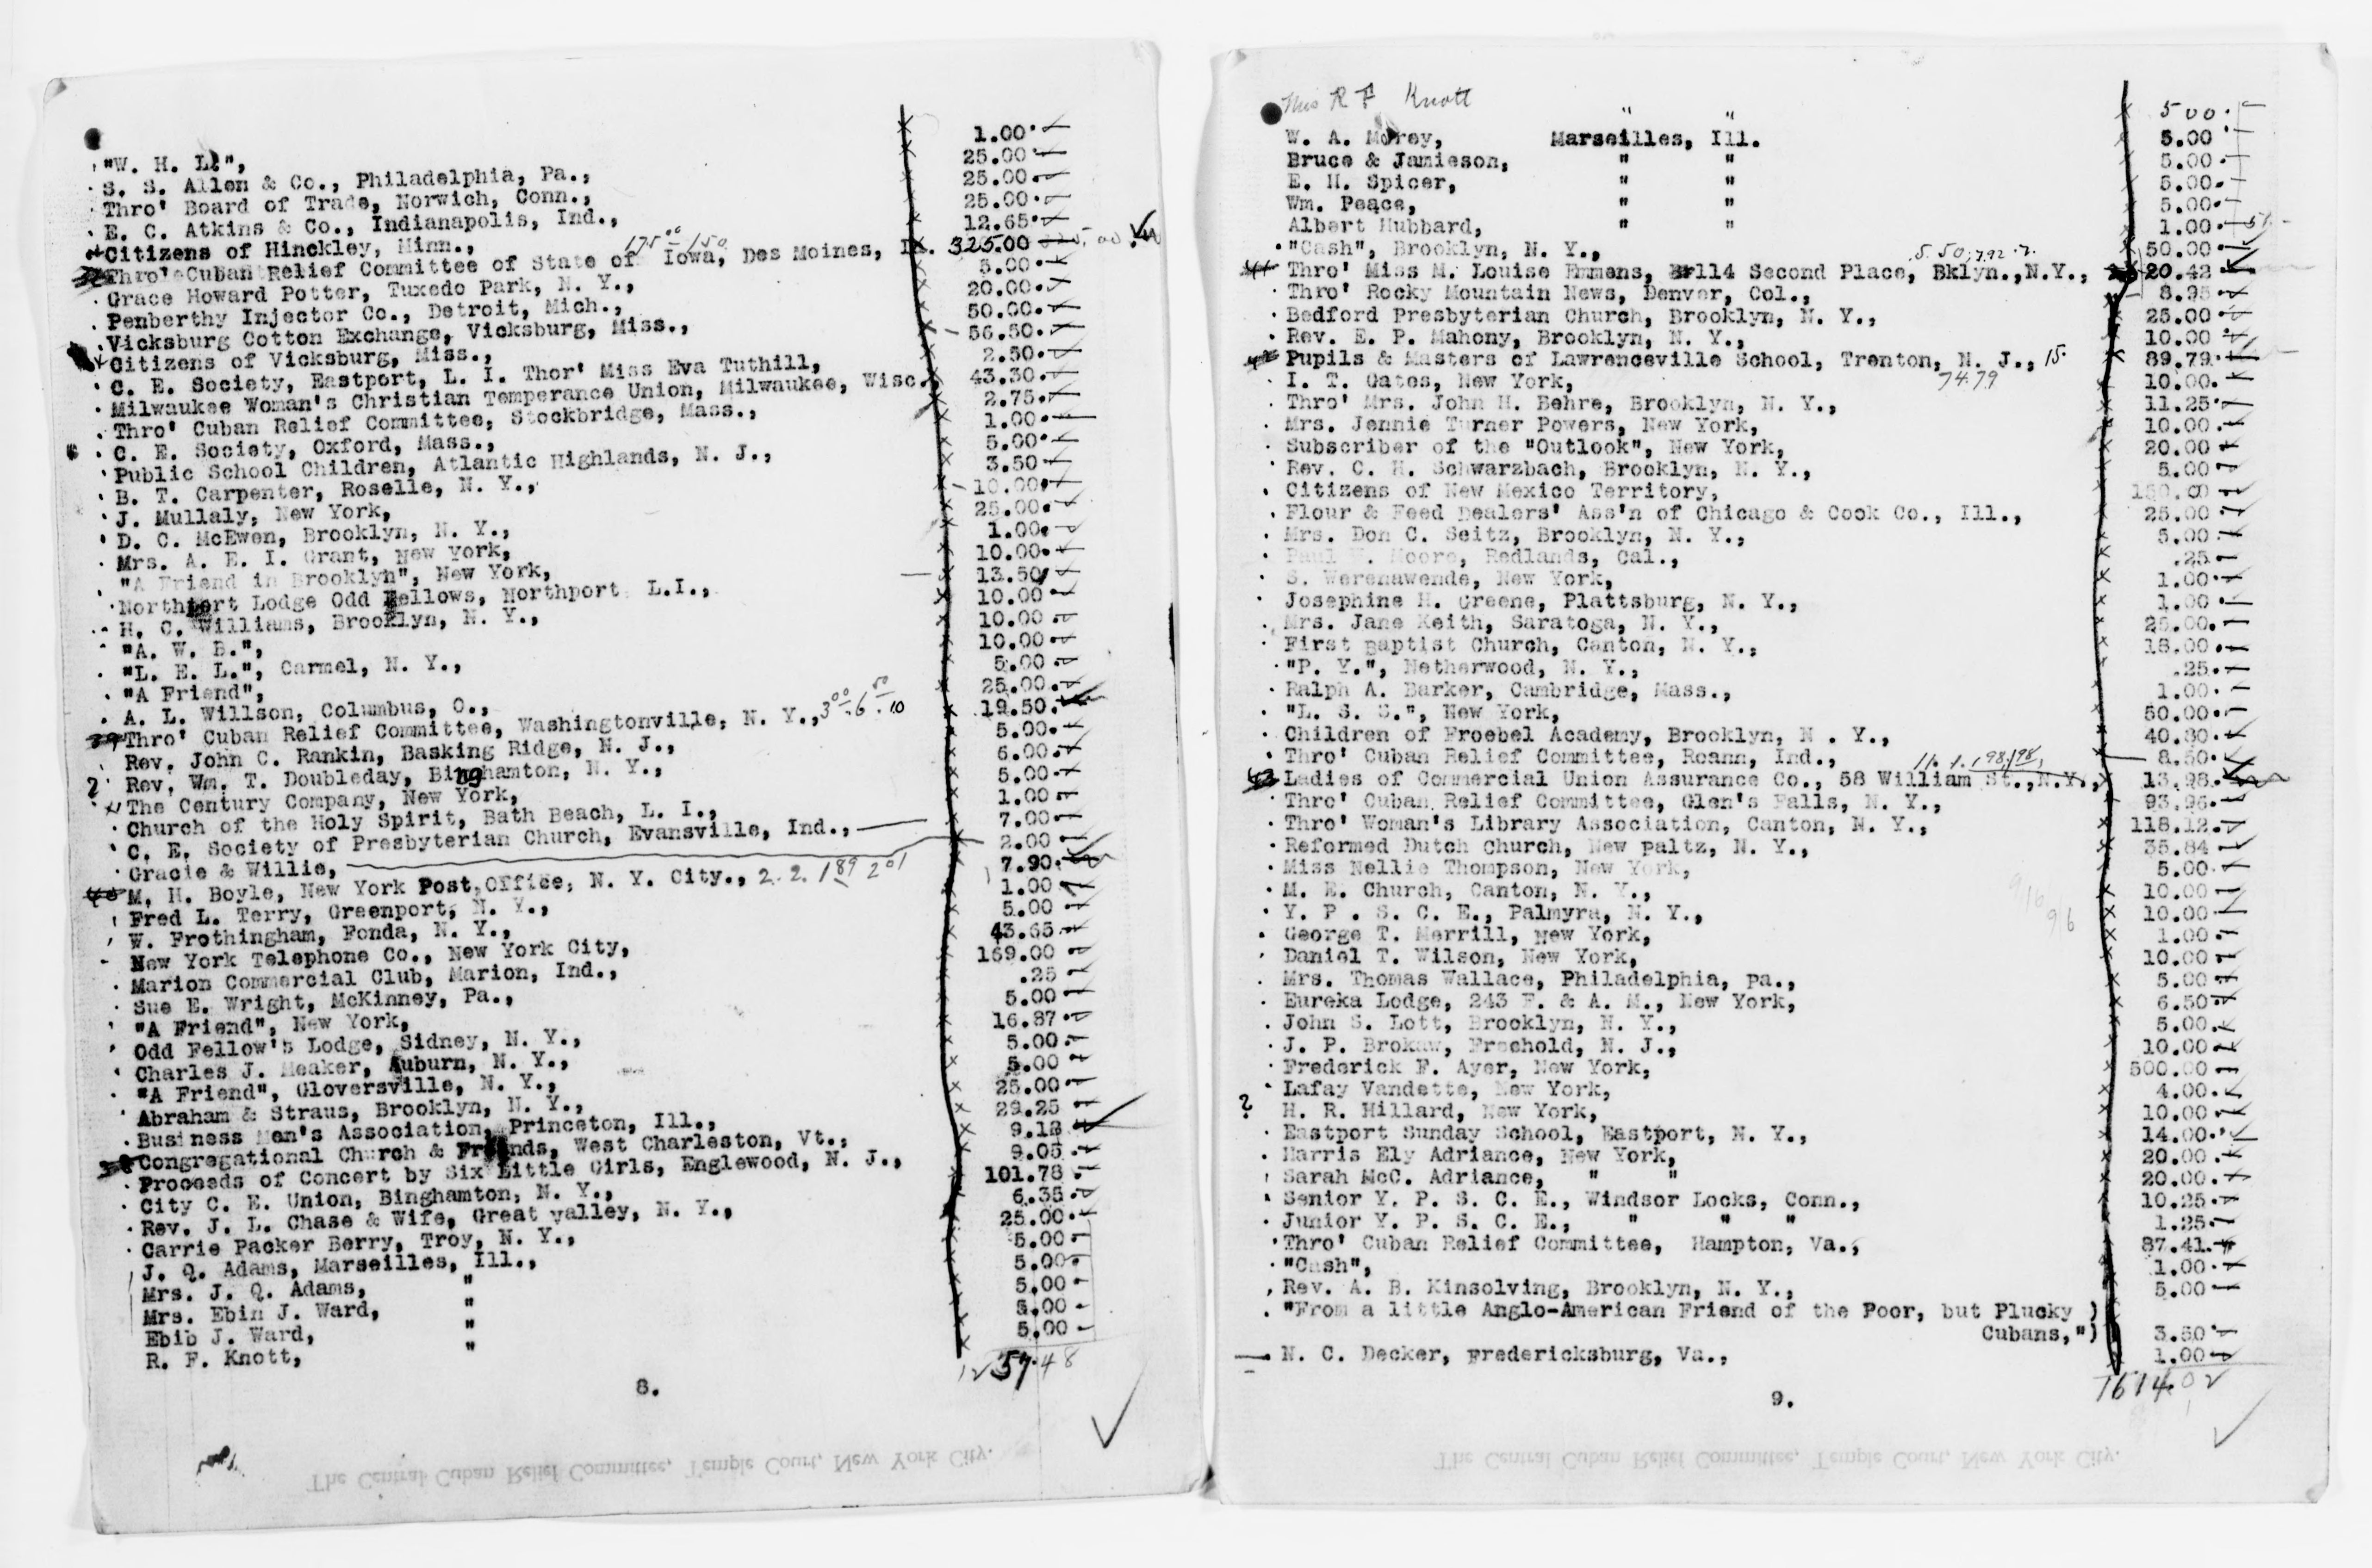 "W. H. L.", 1.00
S. S. Allen & Co., Philadelphia, Pa., 25.00
Thro' Board of Trade, Norwich, Conn., 25.00
E. C. Atkins & Co., Indianapolis, Ind., 25.00
Citizens of Hinckley, Minn., 12.65
Thro' Cuban Relief Committee of State of Iowa, Des Moines, Ia. 325.00
Grace Howard Potter, Tuxedo Park, N. Y., 5.00
Penberthy Injector Co., Detroit, Mich., 20.00
Vicksburg Cotton Exchange, Vicksburg, Miss., 50.00
Citizens of Vicksburg, Miss., 56.50
C. E. Society, Eastport, L. I. Thor' Miss Eva Tuthill, 2.50
Milwaukee Woman's Christian Temperance Union, Milwaukee, Wisc. 43.30
Thro' Cuban Relief Committee, Stockbridge, Mass., 2.75
C. E. Society, Oxford, Mass., 1.00
Public School Children, Atlantic Highlands, N. J., 5.00
B. T. Carpenter, Roselle, N. Y., 3.50
J. Mullaly, New York, 10.00
D. C. McEwen, Brooklyn, N. Y., 25.00
Mrs. A. E. I. Grant, New York, 1.00
"A Friend in Brooklyn", New York, 10.00
Northport Lodge Odd Fellows, Northport L.I., 13.50
H. C. Williams, Brooklyn, N. Y., 10.00
"A. W. B.", 10.00
"L. E. L.", Carmel, N. Y., 10.00
"A Friend", 5.00
A. L. Willson, Columbus, O., 25.00
39 Thro' Cuban Relief Committee, Washingtonville, N. Y., 19.50
Rev. John C. Rankin, Basking Ridge, N. J., 5.00
Rev. Wm. T. Doubleday, Binghamton, N. Y., 6.00
? The Century Company, New York, 5.00
Church of the Holy Spirit, Bath Beach, L. I., 1.00
C. E. Society of Presbyterian Church, Evansville, Ind., 7.00
Gracie & Willie, 2.00
40 M. H. Boyle, New York Post Office, N. Y. City., 2. 2. 189 201 7.90
Fred L. Terry, Greenport, N. Y., 1.00
W. Frothingham, Fonda, N. Y., 5.00
New York Telephone Co., New York City, 43.65
Marion Commercial Club, Marion, Ind., 169.00
Sue E. Wright, McKinney, Pa., .25
"A Friend", New York, 5.00
Odd Fellow's Lodge, Sidney, N. Y., 16.87
Charles J. Meaker, Auburn, N. Y., 5.00
"A Friend", Gloversville, N. Y., 5.00
Abraham & Straus, Brooklyn, N. Y., 25.00
Business Men's Association, Princeton, Ill., 29.25
Congregational Church & Friends, West Charleston, Vt., 9.13
Proceeds of Concert by Six Little Girls, Englewood, N. J., 9.05
City C. E. Union, Binghamton, N. Y., 101.78
Rev. J. L. Chase & Wife, Great Valley, N. Y., 6.35
Carrie Packer Berry, Troy, N. Y., 25.00
J. Q. Adams, Marseilles, Ill., 5.00
Mrs. J. Q. Adams, " 5.00
Mrs. Ebin J. Ward, " 5.00
Ebib J. Ward, " 5.00
R. F. Knott, " 5.00
1257.48
8.
The Central Cuban Relief Committee, Temple Court, New York City.
Mrs R F Knott " " 5 00
W. A. Morey, Marseilles, Ill. 5.00
Bruce & Jamieson, " " 5.00
E. H. Spicer, " " 5.00
Wm. Peace, " " 5.00
Albert Hubbard, " " 1.00
"Cash", Brooklyn, N. Y., 50.00
41 Thro' Miss M. Louise Emmens, 114 Second Place, Bklyn., N.Y., 20.42
Thro' Rocky Mountain News, Denver, Col., 8.95
Bedford Presbyterian Church, Brooklyn, N. Y., 25.00
Rev. E. P. Mahony, Brooklyn, N. Y., 10.00
42 Pupils & Masters of Lawrenceville School, Trenton, N. J., 15. 89.79
74.79
I. T. Gates, New York, 10.00
Thro' Mrs. John H. Behre, Brooklyn, N. Y., 11.25
Mrs. Jennie Turner Powers, New York, 10.00
Subscriber of the "Outlook", New York, 20.00
Rev. C. H. Schwarzbach, Brooklyn, N. Y., 5.00
Citizens of New Mexico Territory, 150.00
Flour & Feed Dealers' Ass'n of Chicago & Cook Co., Ill., 25.00
Mrs. Don C. Seitz, Brooklyn, N. Y., 5.00
Paul Moore, Redlands, Cal., .25
S. Werenawende, New York, 1.00
Josephine H. Greene, Plattsburg, N. Y., 1.00
Mrs. Jane Keith, Saratoga, N. Y., 25.00
First Baptist Church, Canton, N. Y., 18.00
"P. Y.", Netherwood, N. Y., .25
Ralph A. Barker, Cambridge, Mass., 1.00
"L. S. S.", New York, 50.00
Children of Froebel Academy, Brooklyn, N . Y., 40.80
Thro' Cuban Relief Committee, Roann, Ind., 8.50
43 Ladies of Commercial Union Assurance Co., 58 William St., N.Y., 13.98
Thro' Cuban Relief Committee, Glen's Falls, N. Y., 93.96
Thro' Woman's Library Association, Canton, N. Y., 118.12
Reformed Dutch Church, New Paltz, N. Y., 35.84
Miss Nellie Thompson, New York, 5.00
M. E. Church, Canton, N. Y., 10.00
Y. P . S. C. E., Palmyra, N. Y., 10.00
George T. Merrill, New York, 1.00
Daniel T. Wilson, New York, 10.00
Mrs. Thomas Wallace, Philadelphia, Pa., 5.00
Eureka Lodge, 243 F. & A. M., New York, 6.50
John S. Lott, Brooklyn, N. Y., 5.00
J. P. Brokaw, Freehold, N. J., 10.00
Frederick F. Ayer, New York, 500.00
Lafay Vandette, New York, 4.00
? H. R. Hillard, New York, 10.00
Eastport Sunday School, Eastport, N. Y., 14.00
Harris Ely Adriance, New York, 20.00
Sarah McC. Adriance, " " 20.00
Senior Y. P. S. C. E., Windsor Locks, Conn., 10.25
Junior Y. P. S. C. E., " " " 1.25
Thro' Cuban Relief Committee, Hampton, Va., 87.41
"Cash", 1.00
Rev. A. B. Kinsolving, Brooklyn, N. Y., 5.00
"From a little Anglo-American Friend of the Poor, but Plucky )
Cubans,") 3.50
N. C. Decker, Fredericksburg, Va., 1.00
1614.02
9.
The Central Cuban Relief Committee, Temple Court, New York City.